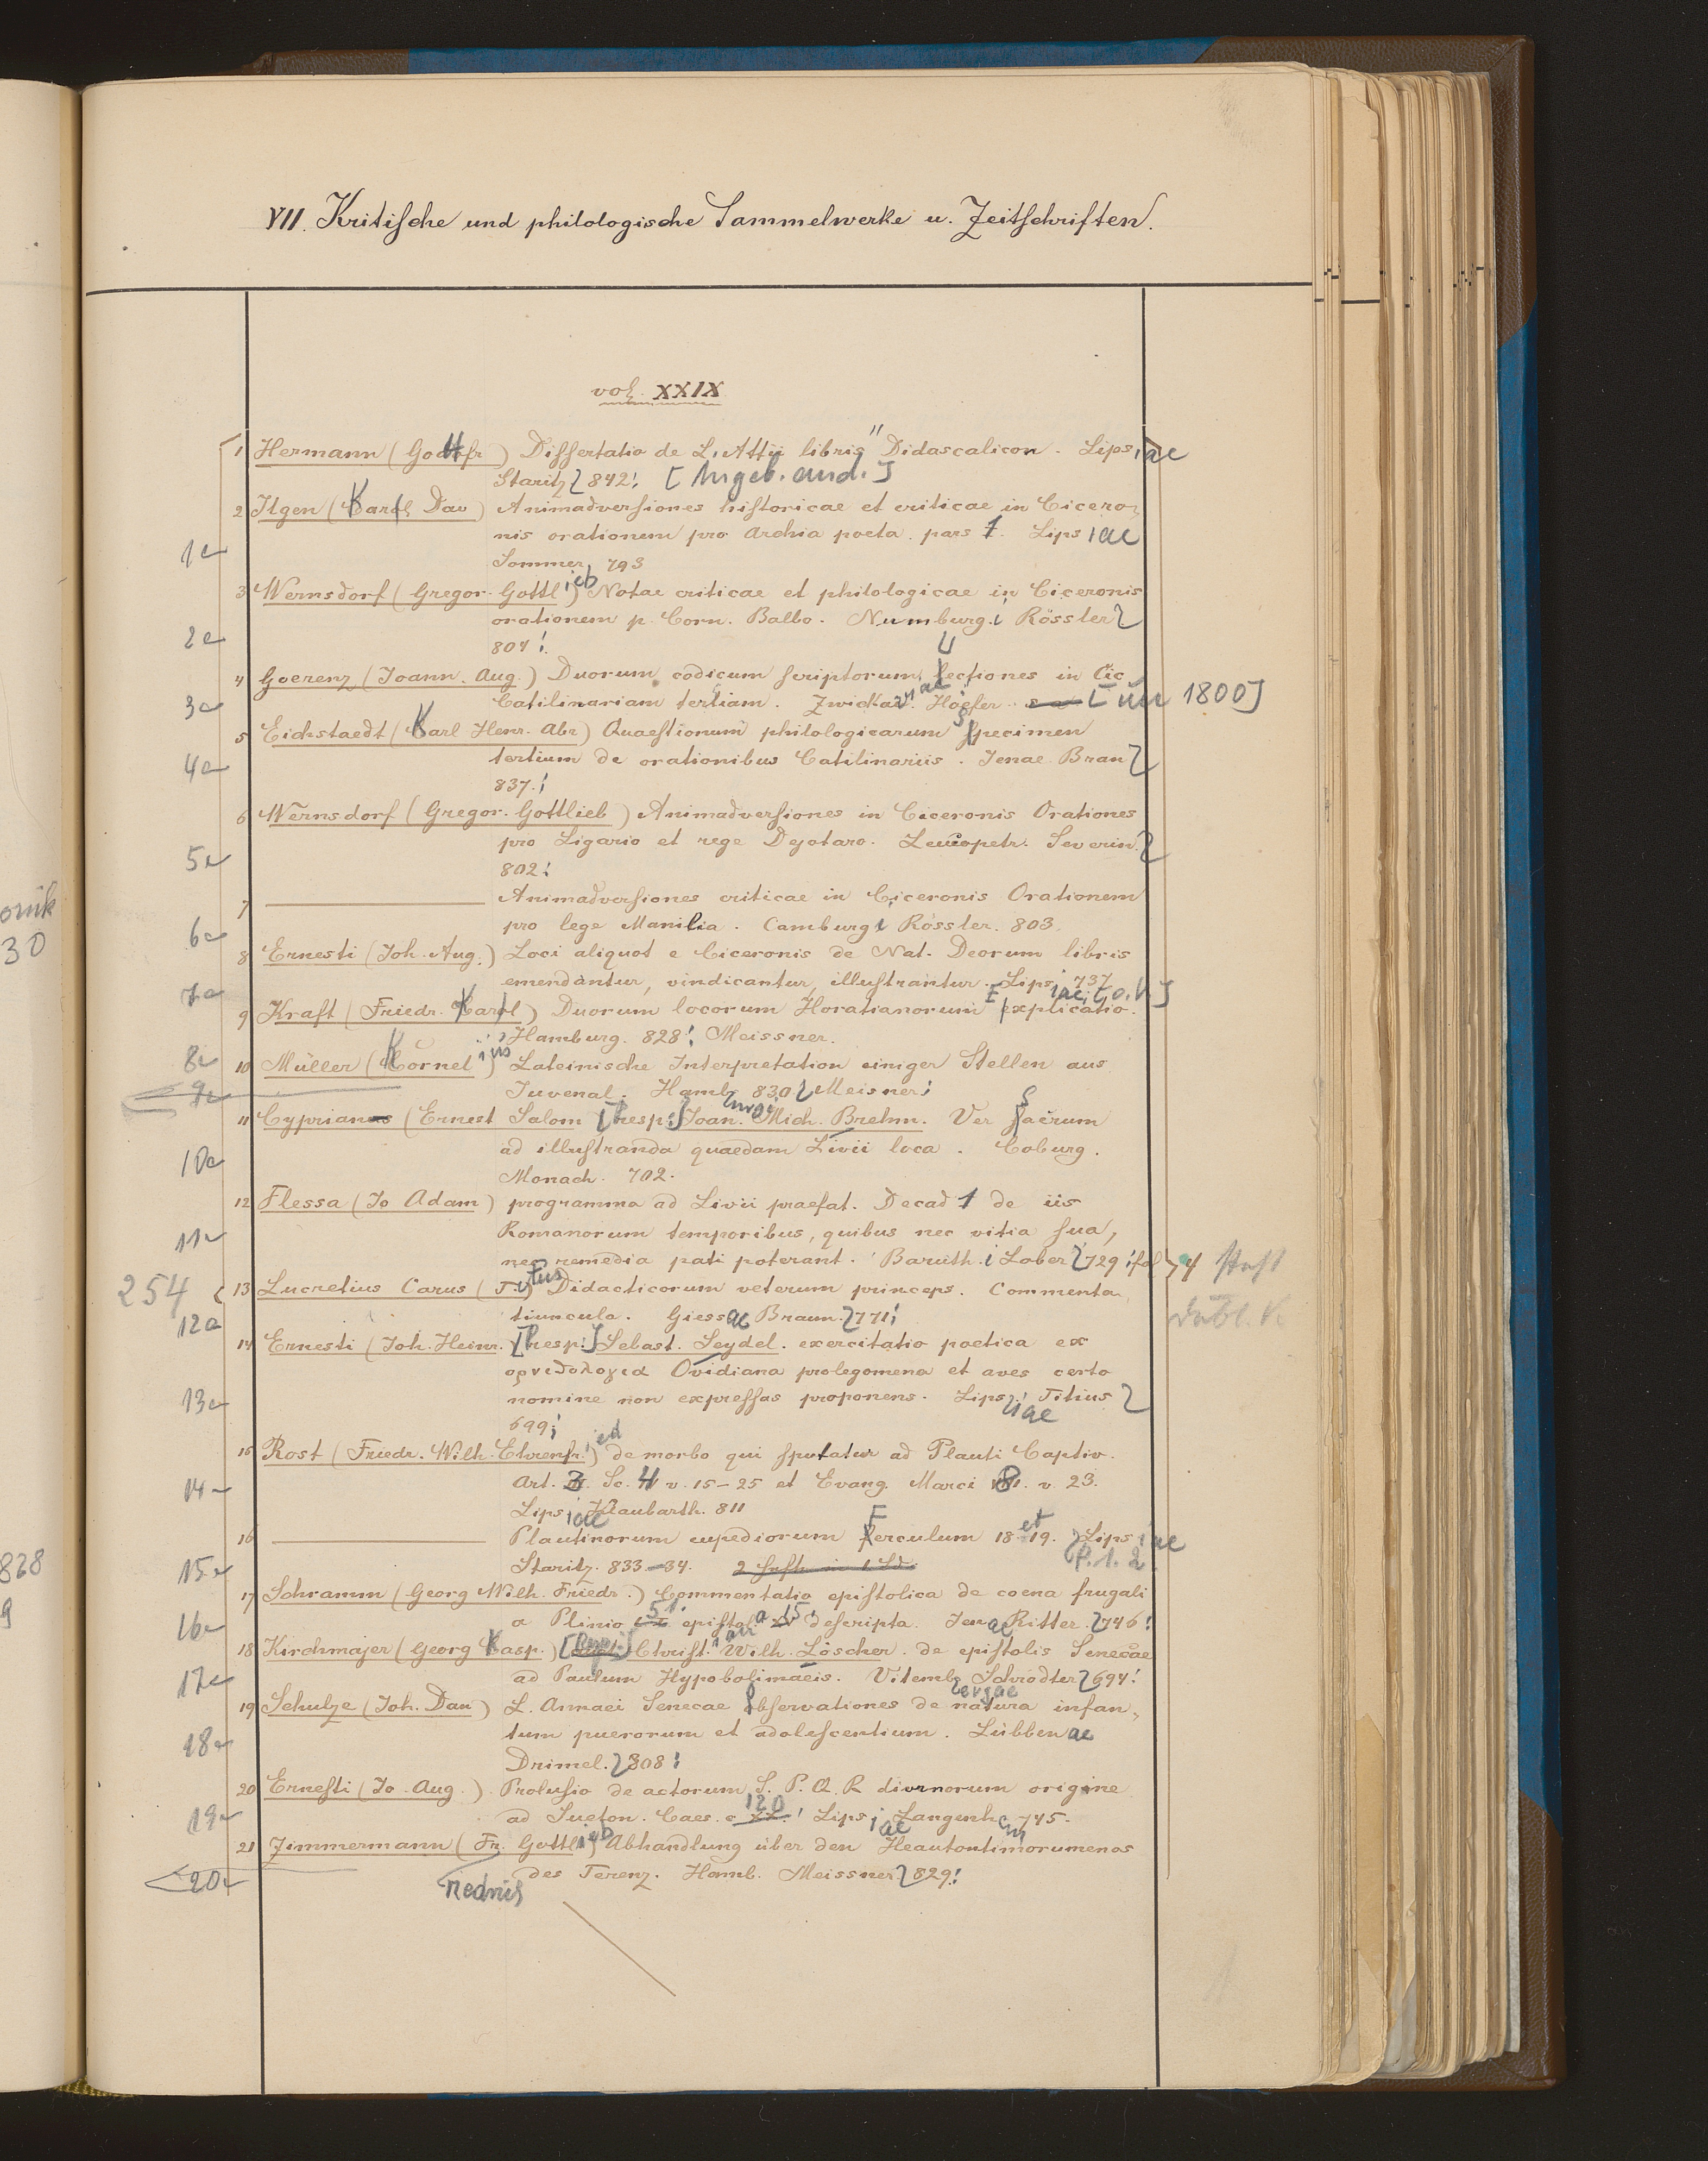 VII. Kritische und philologische Sammelwerke u. Zeitschriften.
vol. XXIX
1 Hermann (Gottfr) Dissertatio de L. Attii libris "Didascalicon. Lipsiae
Staritz 842. [Angeb. and.]
2 Ilgen (Karl Dav) Animadversiones historicae et criticae in Cicero-
nis orationem pro Archia poeta. pars 1. Lipsiae
1a Sommer, 793
3 Wernsdorf (Gregor. Gottlieb) Notae criticae et philologicae in Ciceronis
orationem p. Corn. Balbo. Numburg. Rössler
2a 804.
4 Goerenz (Joann. Aug.) Duorum codicum scriptorum lectiones in Cic
3a Catilinariam tertiam. Hoefer 1800]
5 Eichstaedt (Karl Henr. Abr) Quaestionum philologicarum specimen
4a tertium de orationibus Catilinariis. Jenae Bran
837.
6 Wernsdorf (Gregor. Gottlieb) Animadversiones in Ciceronis Orationes
5a pro Ligario et rege Dejotaro. Leucopetr. Severin.
802.
7 Animadversiones criticae in Ciceronis Orationem
6a pro lege Manilia. Camburg Rössler. 803.
8 Ernesti (Joh. Aug.) Loci aliquot e Ciceronis de Nat. Deorum libris
7a emendantur, vindicantur, illustrantur. Lipsiae, 737 [o. V.]
9 Kraft (Friedr. Karl) Duorum locorum Horatianorum Explicatio.
Hamburg. 828. Meissner.
8a
10 Müller (Kornel) Lateinische Interpretation einiger Stellen aus
9a Juvenal. Hamb. 830 Meisner
11 Cyprian (Ernest Salom [Resp.] Joan. Mich. Brehm. Ver Sacrum
10a ad illustranda quaedam Livii loca. Coburg.
Monach. 702.
12 Flessa (Jo Adam) programma ad Livii praefat. Decad 1 de iis
11a Romanorum temporibus, quibus nec vitia sua,
nec remedia pati poterant. Baruth. Lober 729. fol
254 13 Lucretius Carus (Titus) Didacticorum veterum princeps. Commenta
12a tiuncula. Giessae Braun. 771.
14 Ernesti (Joh. Heinr. [Resp:] Sebast. Seydel. exercitatio poetica ex
ορνιθολογια Ovidiana prolegomena et aves certo
13a nomine non expressas proponens. Lipsiae Titius
699.
15 Rost (Friedr. Wilh. Ehrenfr.) de morbo qui sputatur ad Plauti Captiv.
14a Act. 3. Sc. 4 v. 15-25 et Evang. Marci 8. v. 23.
Lipsiae Klaubarth. 811
16 Plautinorum cupediorum Ferculum 18 et 19. Lipsiae
15a Staritz. 833-34. P. 1. 2
17 Schramm (Georg Wilh. Friedr.) Commentatio epistolica de coena frugali
16a a Plinio epistola 15 descripta. Jenae Ritter. 746.
18 Kirchmajer (Georg Kasp.) [Resp.] Christian Wilh. Löscher. de epistolis Senecae
17a ad Paulum Hypobolimaeis. Vitembergae Schrödter 694.
19 Schulze (Joh. Dan) L. Annaei Senecae observationes de natura infan-
18a tum puerorum et adolescentium. Lübbenae
Drimel. 808.
20 Ernesti (Jo. Aug.) Prolusio de actorum S. P. Q. R diurnorum origine
19a ad Sueton. Caes. c 20. Lipsiae Langenhem 745.
21 Zimmermann (Fr. Gottlieb) Abhandlung über den Heautontimorumenos
20a des Terenz. Hamb. Meissner 829.